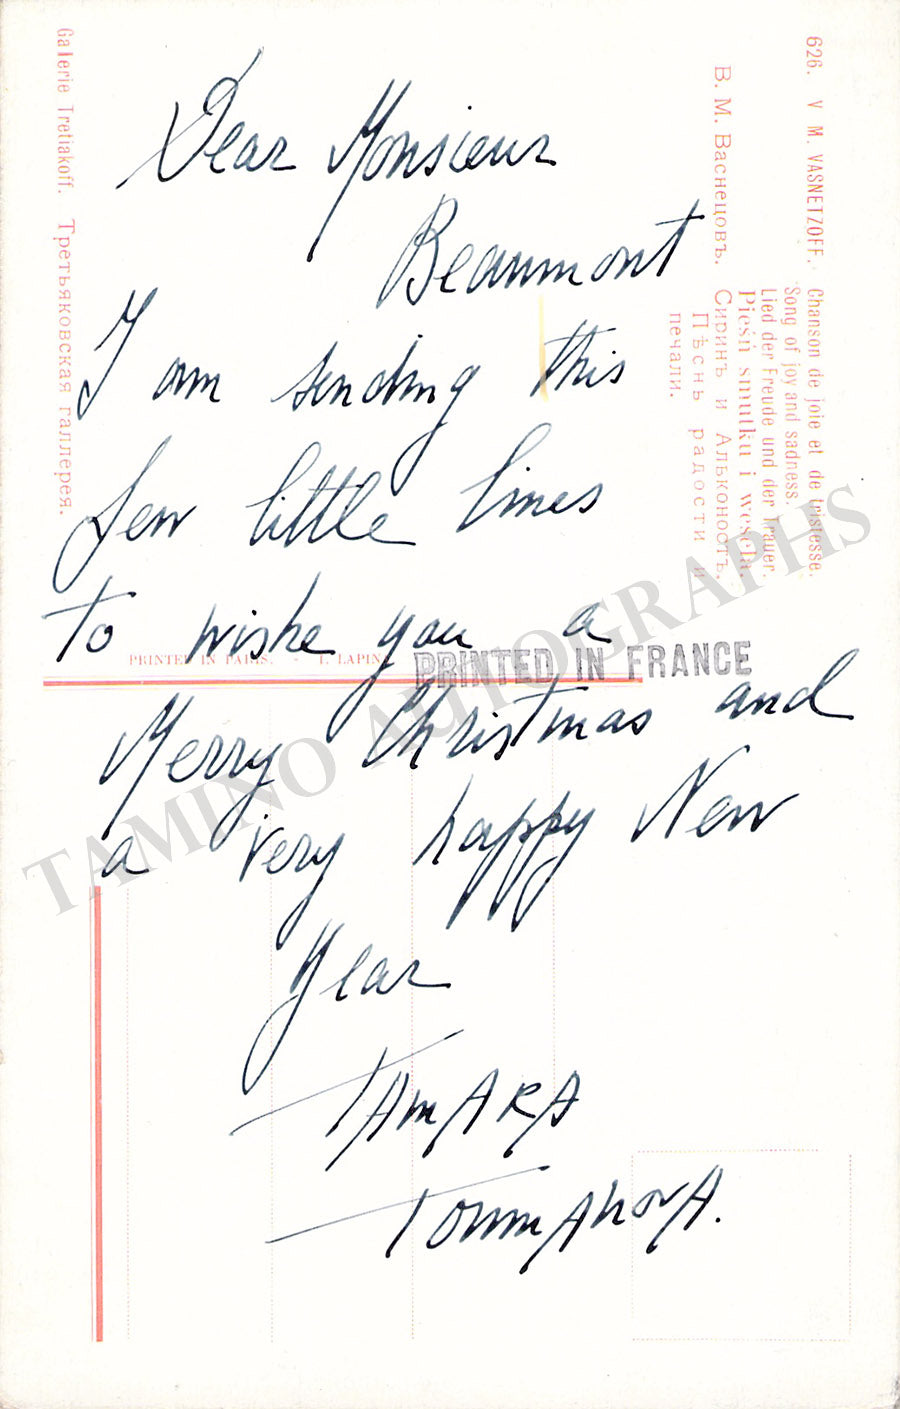 Dear Monsieur
Beaumont
I am sending this
few little lines
to wishe you a
Merry Christmas and
a very happy New
Year
TAMARA
TOUMANOVA.
626. V M. VASNETZOFF. Chanson de joie et de tristesse.
Song of joy and sadness.
Lied der Freude und der Trauer.
Pieśń smutku i wesela
В. М. Васнецовъ. Сиринъ и Альконостъ.
Пѣснь радости и
печали.
Galerie Tretiakoff. Третьяковская галлерея.
PRINTED IN PARIS. - I. LAPINA
PRINTED IN FRANCE
TAMINO AUTOGRAPHS